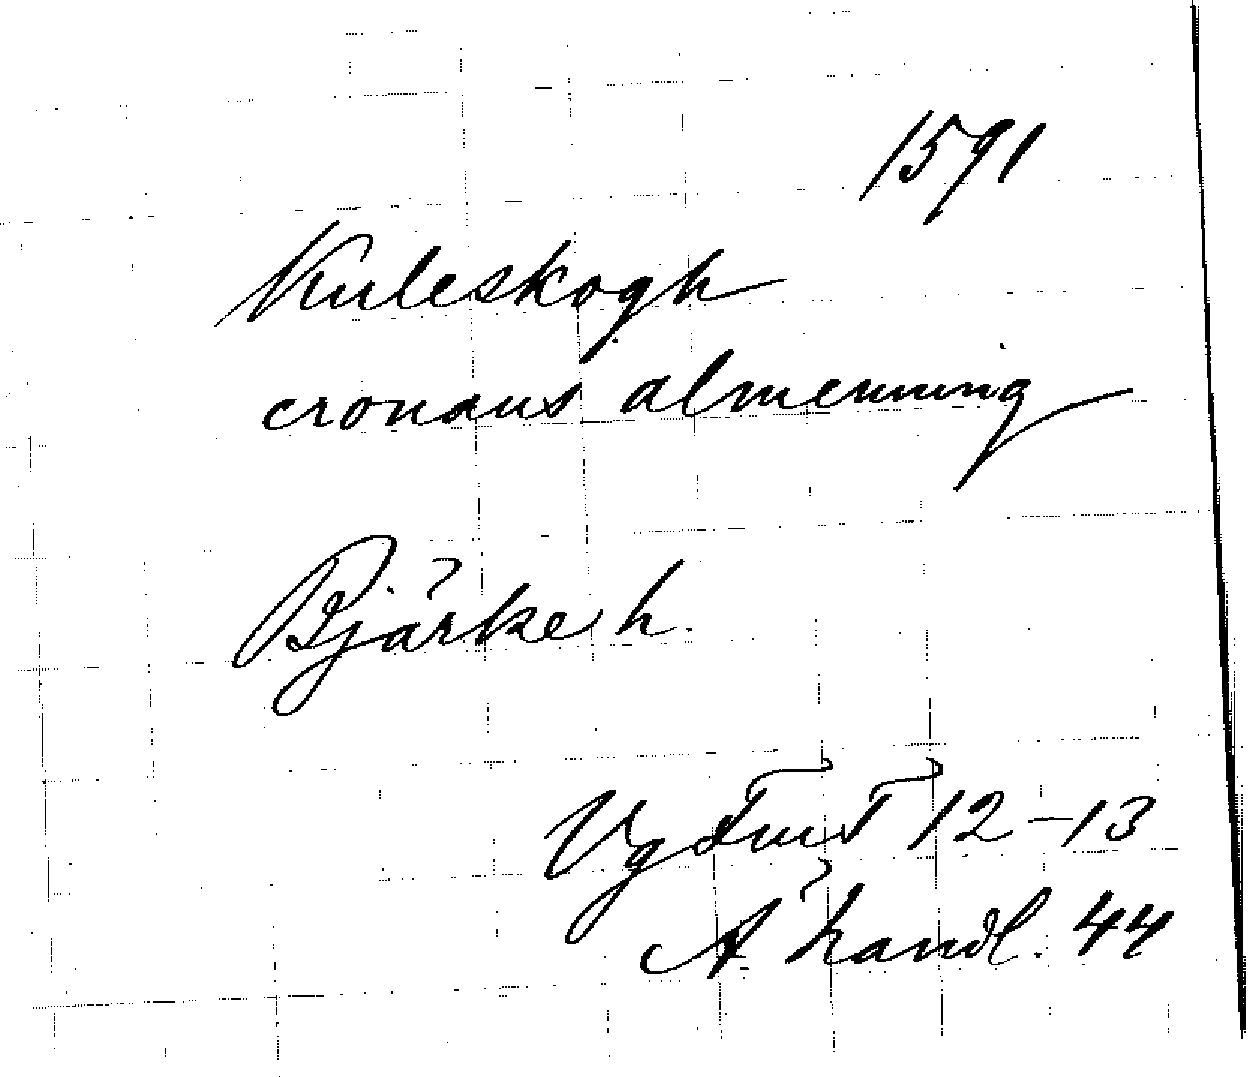 1591
Kuleskogh
cronans almenning
Bjärke h.
Vg FmT 12-13
A handl. 44